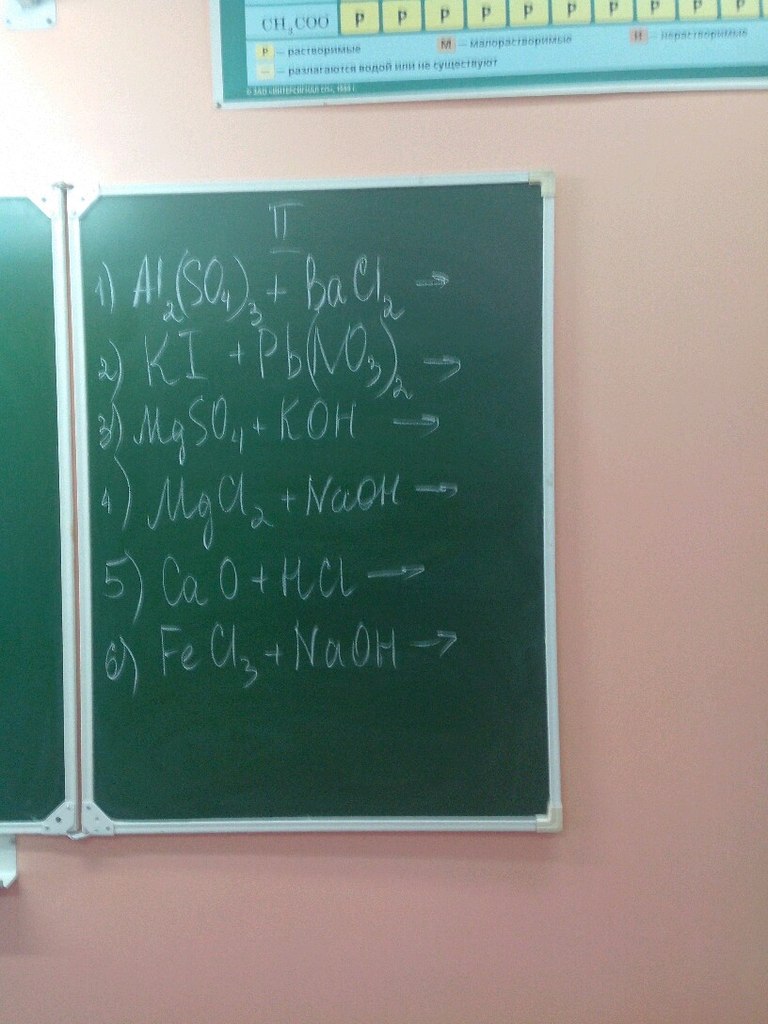 CH₃COO⁻ P P P P P P P P P P
P — растворимые М — малорастворимые Н — нерастворимые
— — разлагаются водой или не существуют
© ЗАО «ИНТЕРСИГНАЛ СП», 1998 г.
II
1) Al₂(SO₄)₃ + BaCl₂ →
2) KI + Pb(NO₃)₂ →
3) MgSO₄ + KOH →
4) MgCl₂ + NaOH →
5) CaO + HCl →
6) FeCl₃ + NaOH →